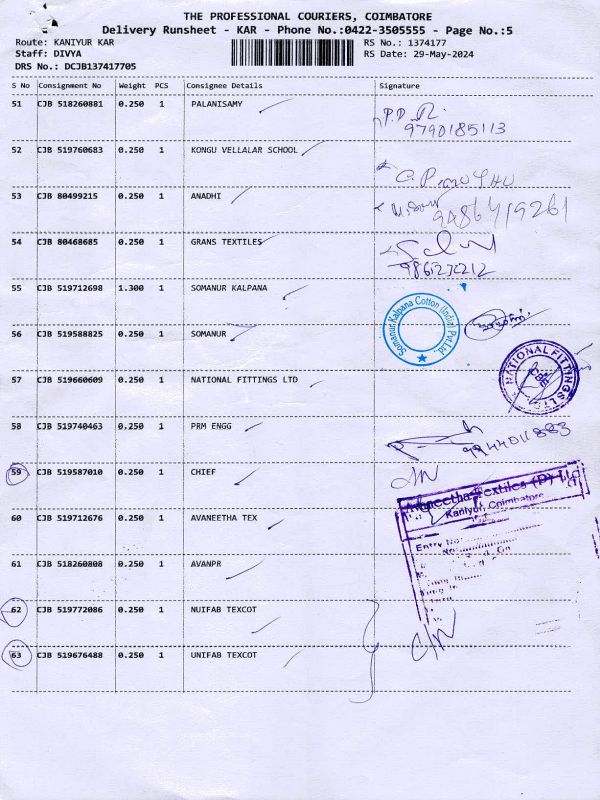 THE PROFESSIONAL COURIERS, COIMBATORE
Delivery Runsheet - KAR - Phone No.:0422-3505555 - Page No.:5
Route: KANIYUR KAR RS No.: 1374177
Staff: DIVYA RS Date: 29-May-2024
DRS No.: DCJB137417705
S No Consignment No Weight PCS Consignee Details Signature
51 CJB 518260881 0.250 1 PALANISAMY
9790185113
52 CJB 519760683 0.250 1 KONGU VELLALAR SCHOOL
53 CJB 80499215 0.250 1 ANADHI
9486419261
54 CJB 80468685 0.250 1 GRANS TEXTILES
55 CJB 519712698 1.300 1 SOMANUR KALPANA
Somanur Kalpana Cotton (India) Pvt Ltd.,
56 CJB 519588825 0.250 1 SOMANUR
NATIONAL FITTINGS LTD
57 CJB 519660609 0.250 1 NATIONAL FITTINGS LTD
58 CJB 519740463 0.250 1 PRM ENGG
9944011883
59 CJB 519587010 0.250 1 CHIEF
Avaneetha Textiles (P) Ltd
Kaniyur, Coimbatore
Entry No:
60 CJB 519712676 0.250 1 AVANEETHA TEX
61 CJB 518260808 0.250 1 AVANPR
62 CJB 519772086 0.250 1 NUIFAB TEXCOT
63 CJB 519676488 0.250 1 UNIFAB TEXCOT